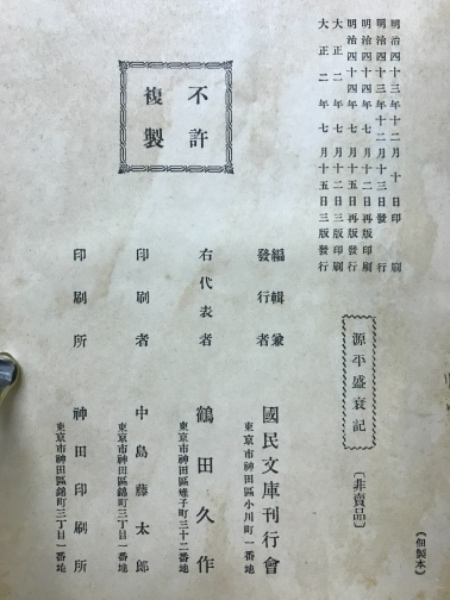 明治四十三年十二月十日印刷
明治四十三年十二月十三日發行
明治四十四年七月十二日再版印刷
明治四十四年七月十五日再版發行
大正二年七月十二日三版印刷
大正二年七月十五日三版發行
不許
複製
源平盛衰記
〔非賣品〕
編輯兼
發行者
國民文庫刊行會
東京市神田區小川町一番地
右代表者
鶴田久作
東京市神田區雉子町三十二番地
印刷者
中島藤太郎
東京市神田區錦町三丁目一番地
印刷所
神田印刷所
東京市神田區錦町三丁目一番地